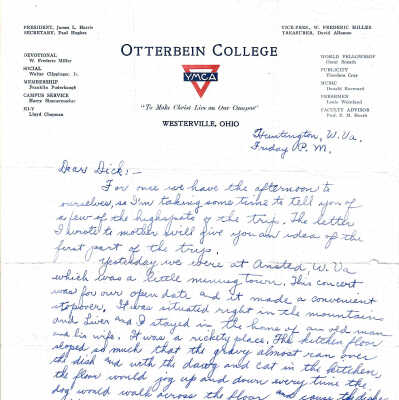 PRESIDENT, James L. Harris
SECRETARY, Paul Hughes
VICE-PRES., W. FREDERIC MILLER
TREASURER, David Allaman
OTTERBEIN COLLEGE
DEVOTIONAL
W. Frederic Miller
SOCIAL
MEMBERSHIP
CAMPUS SERVICE
Harry Zimmermacher
HI-Y
Lloyd Chapman
YMCA
WORLD FELLOWSHIP
PUBLICITY
Theodore Cruz
MUSIC
FRESHMEN
FACULTY ADVISOR
"To Make Christ Live on Our Campus"
WESTERVILLE, OHIO
Huntington, W. Va.
Friday P. M.
Dear Dick:-
For once we have the afternoon to
ourselves, so I'm taking some time to tell you of
a few of the highspots of the trip. The letter
I wrote to mother will give you an idea of the
first part of the trip.
Yesterday we were at Ansted, W. Va
which was a little mining town. This concert
was for our open date and it made a convenient
stopover. It was situated right in the mountains
and and I stayed in the home of an old man
and his wife. It was a rickety place. The kitchen floor
sloped so much that the gravy almost ran over
the dish and with the dawg and cat in the kitchen,
the floor would jog up and down every time the
dog would walk across the floor and cause the dishes